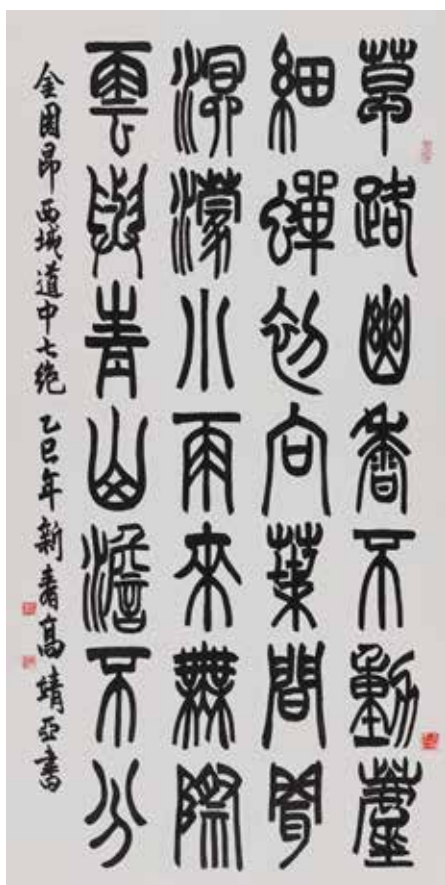 草路幽香不動塵
細蟬初向葉間聞
溟濛小雨來無際
雲與青山澹不分
金周昂西城道中七絶 乙巳年新春高靖亞書